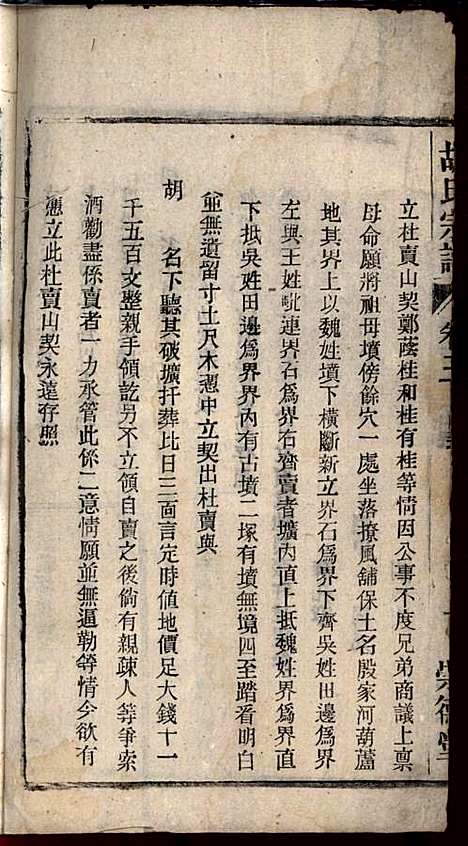 胡氏宗譜 卷三
崇德堂
立杜賣山契鄭蔭桂和桂有桂等情因公事不度兄弟商議上稟
母命願將祖母墳傍餘穴一處坐落撩風舖保土名殷家河葫蘆
地其界上以魏姓墳下橫斷新立界石爲界下齊吳姓田邊爲界
左與王姓毗連界石爲界右齊賣者壙內直上抵魏姓界爲界直
下抵吳姓田邊爲界界內有古墳二塚有墳無境四至踏看明白
並無遺留寸土尺木憑中立契出杜賣與
胡 名下聽其破壙扦葬比日三面言定時値地價足大錢十一
千五百文整親手領訖另不立領自賣之後倘有親疎人等爭索
酒勸盡係賣者一力承管此係二意情願並無逼勒等情今欲有
憑立此杜賣山契永遠存照